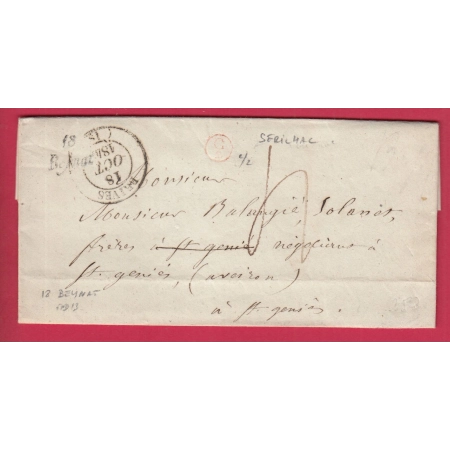 18
Beynat
BRIVES
18
OCT
184
(18)
SERILHAC
e/2
Monsieur
Monsieur Balangié, Solanet,
frères à st geniés négociens à
st. geniés, (aveiron)
à st. geniés.
12 BEYNAT